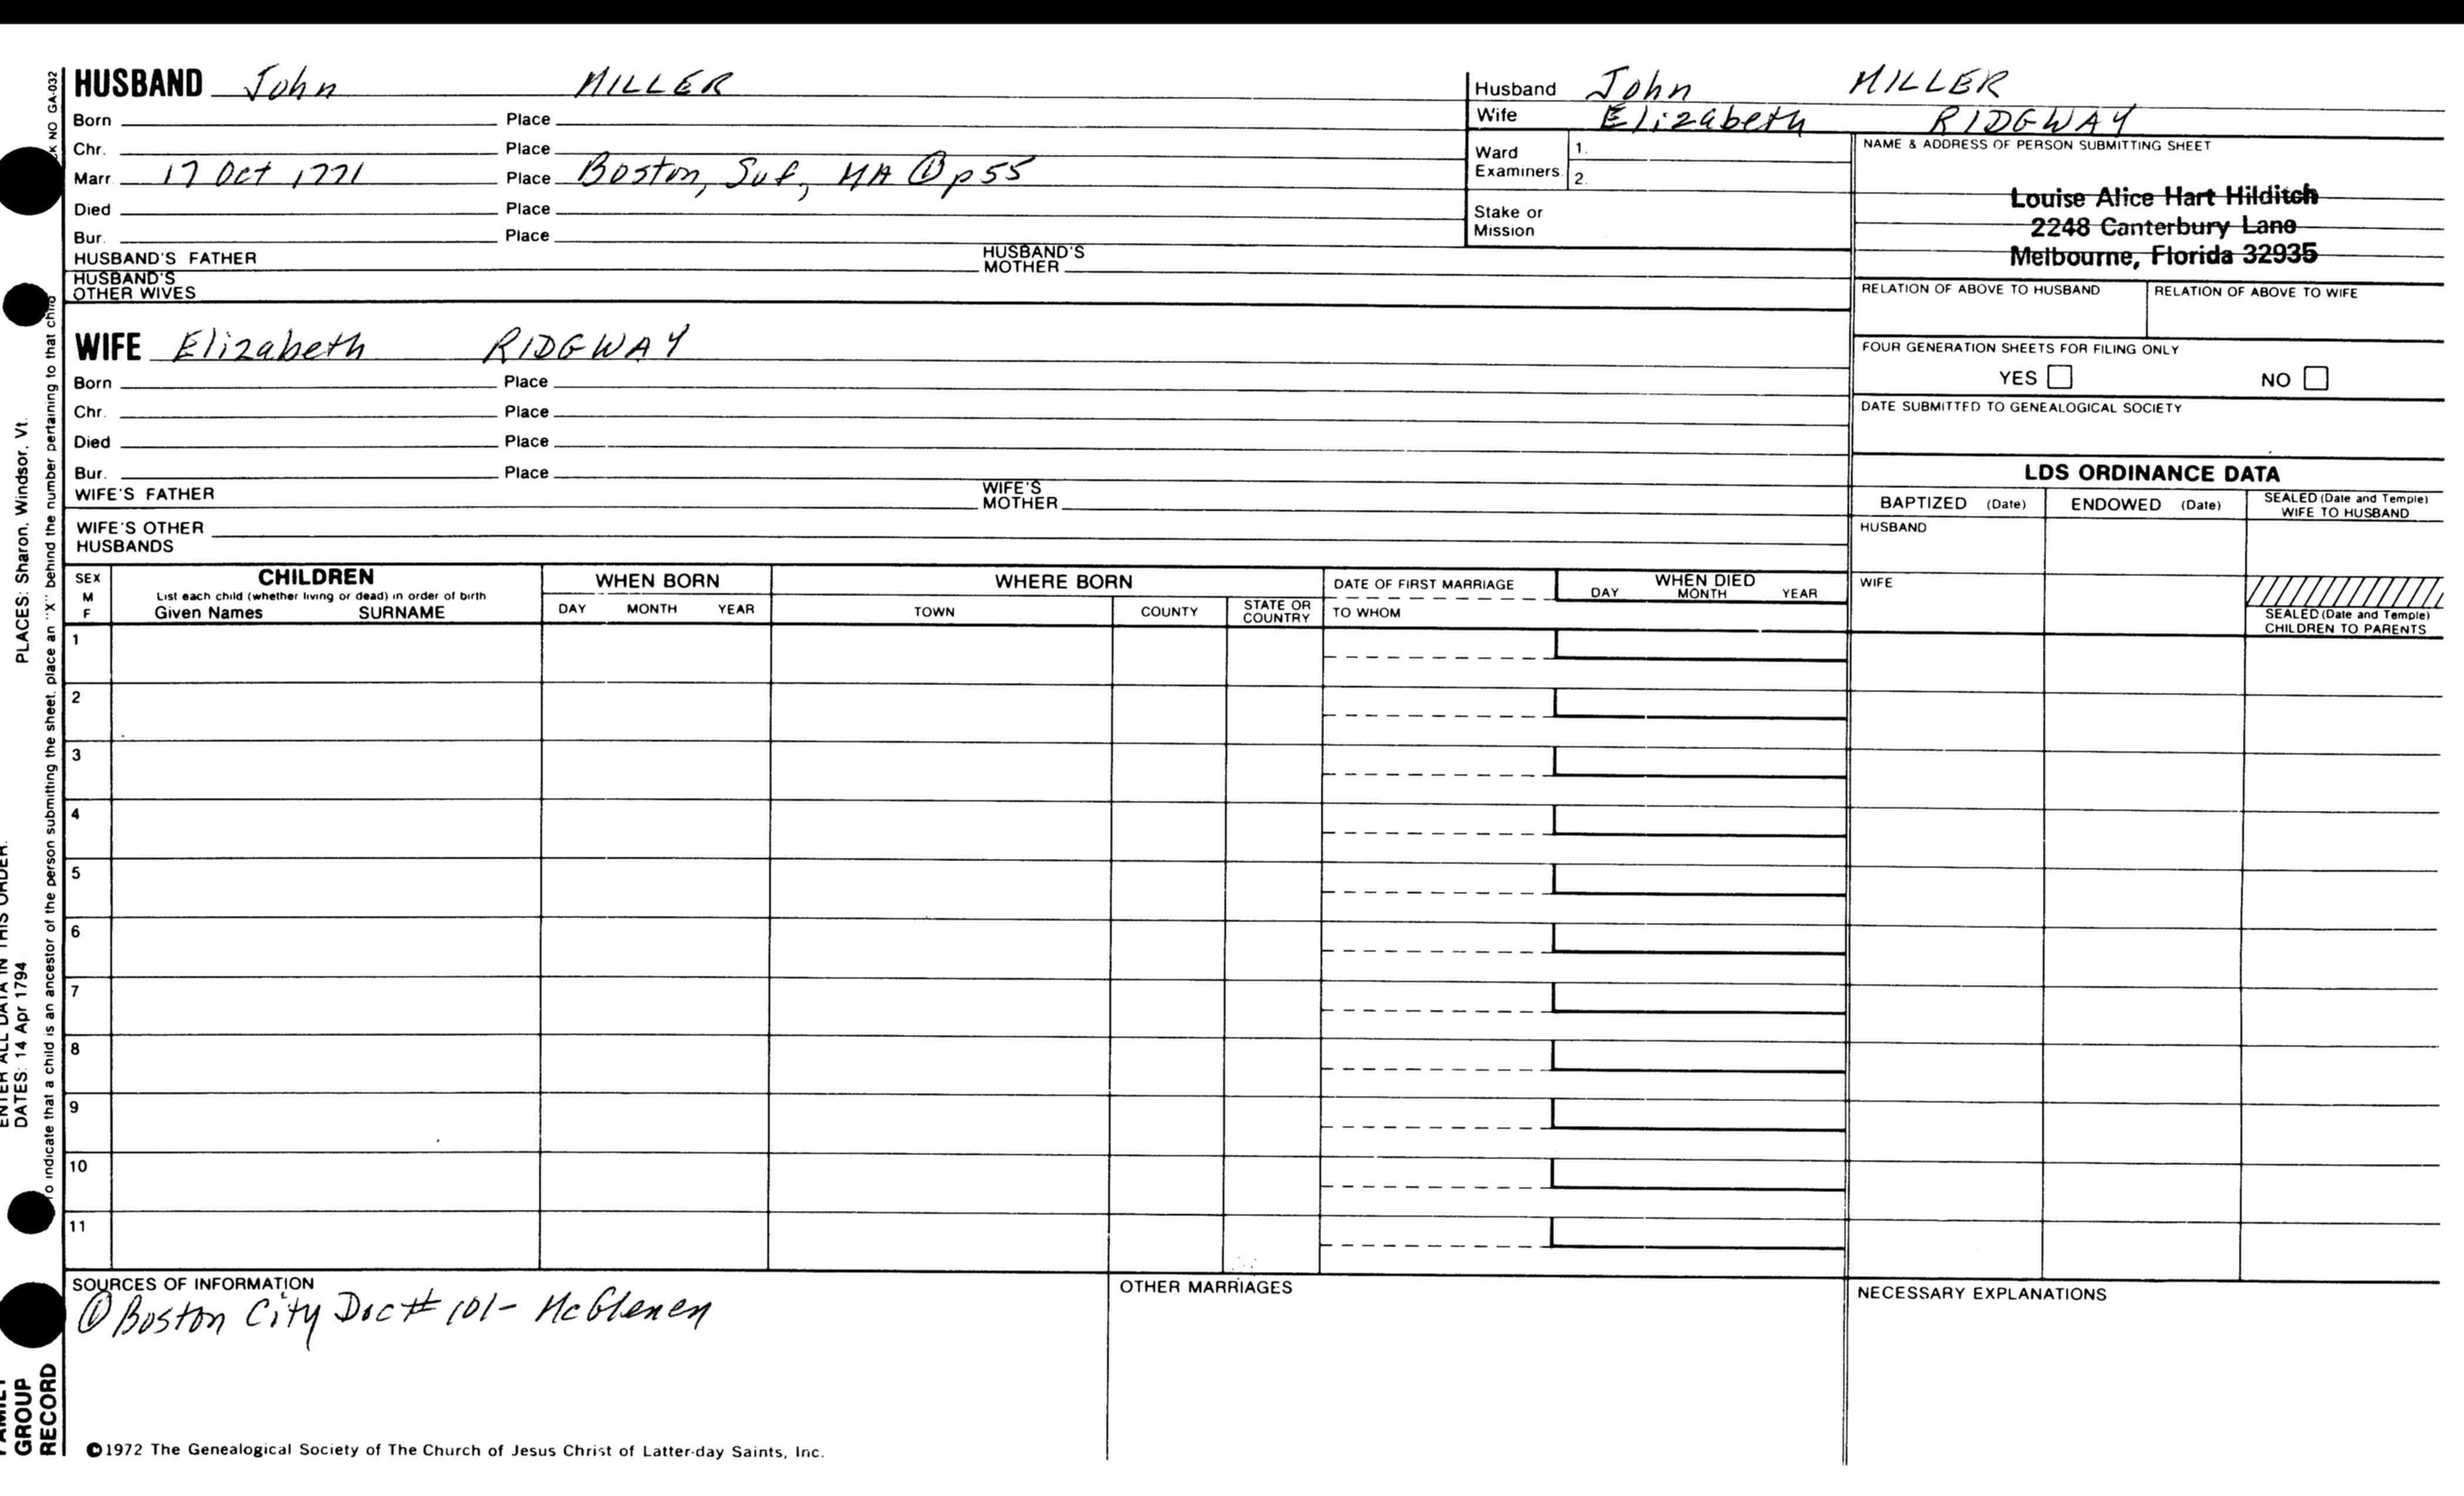 HUSBAND John MILLER
Born Place
Chr. Place
Marr. 17 Oct 1771 Place Boston, Suf, MA ① p 55
Died Place
Bur. Place
HUSBAND'S FATHER HUSBAND'S MOTHER
HUSBAND'S OTHER WIVES
WIFE Elizabeth RIDGWAY
Born Place
Chr. Place
Died Place
Bur. Place
WIFE'S FATHER WIFE'S MOTHER
WIFE'S OTHER HUSBANDS
Husband John MILLER
Wife Elizabeth RIDGWAY
Ward Examiners 1.
2.
Stake or Mission
NAME & ADDRESS OF PERSON SUBMITTING SHEET
Louise Alice Hart Hilditch
2248 Canterbury Lane
Melbourne, Florida 32935
RELATION OF ABOVE TO HUSBAND RELATION OF ABOVE TO WIFE
FOUR GENERATION SHEETS FOR FILING ONLY
YES NO
DATE SUBMITTED TO GENEALOGICAL SOCIETY
LDS ORDINANCE DATA
BAPTIZED (Date) ENDOWED (Date) SEALED (Date and Temple) WIFE TO HUSBAND
HUSBAND
WIFE
SEALED (Date and Temple)
CHILDREN TO PARENTS
SEX M F
CHILDREN
List each child (whether living or dead) in order of birth
Given Names SURNAME
WHEN BORN
DAY MONTH YEAR
WHERE BORN
TOWN COUNTY STATE OR COUNTRY
DATE OF FIRST MARRIAGE
TO WHOM
WHEN DIED
DAY MONTH YEAR
1
2
3
4
5
6
7
8
9
10
11
SOURCES OF INFORMATION
① Boston City Doc # 101 - McGlenen
OTHER MARRIAGES
NECESSARY EXPLANATIONS
©1972 The Genealogical Society of The Church of Jesus Christ of Latter-day Saints, Inc.
NO GA-032
PLACES: Sharon, Windsor, Vt.
To indicate that a child is an ancestor of the person submitting the sheet, place an "X" behind the number pertaining to that child
ENTER ALL DATA IN THIS ORDER:
DATES: 14 Apr 1794
FAMILY
GROUP
RECORD